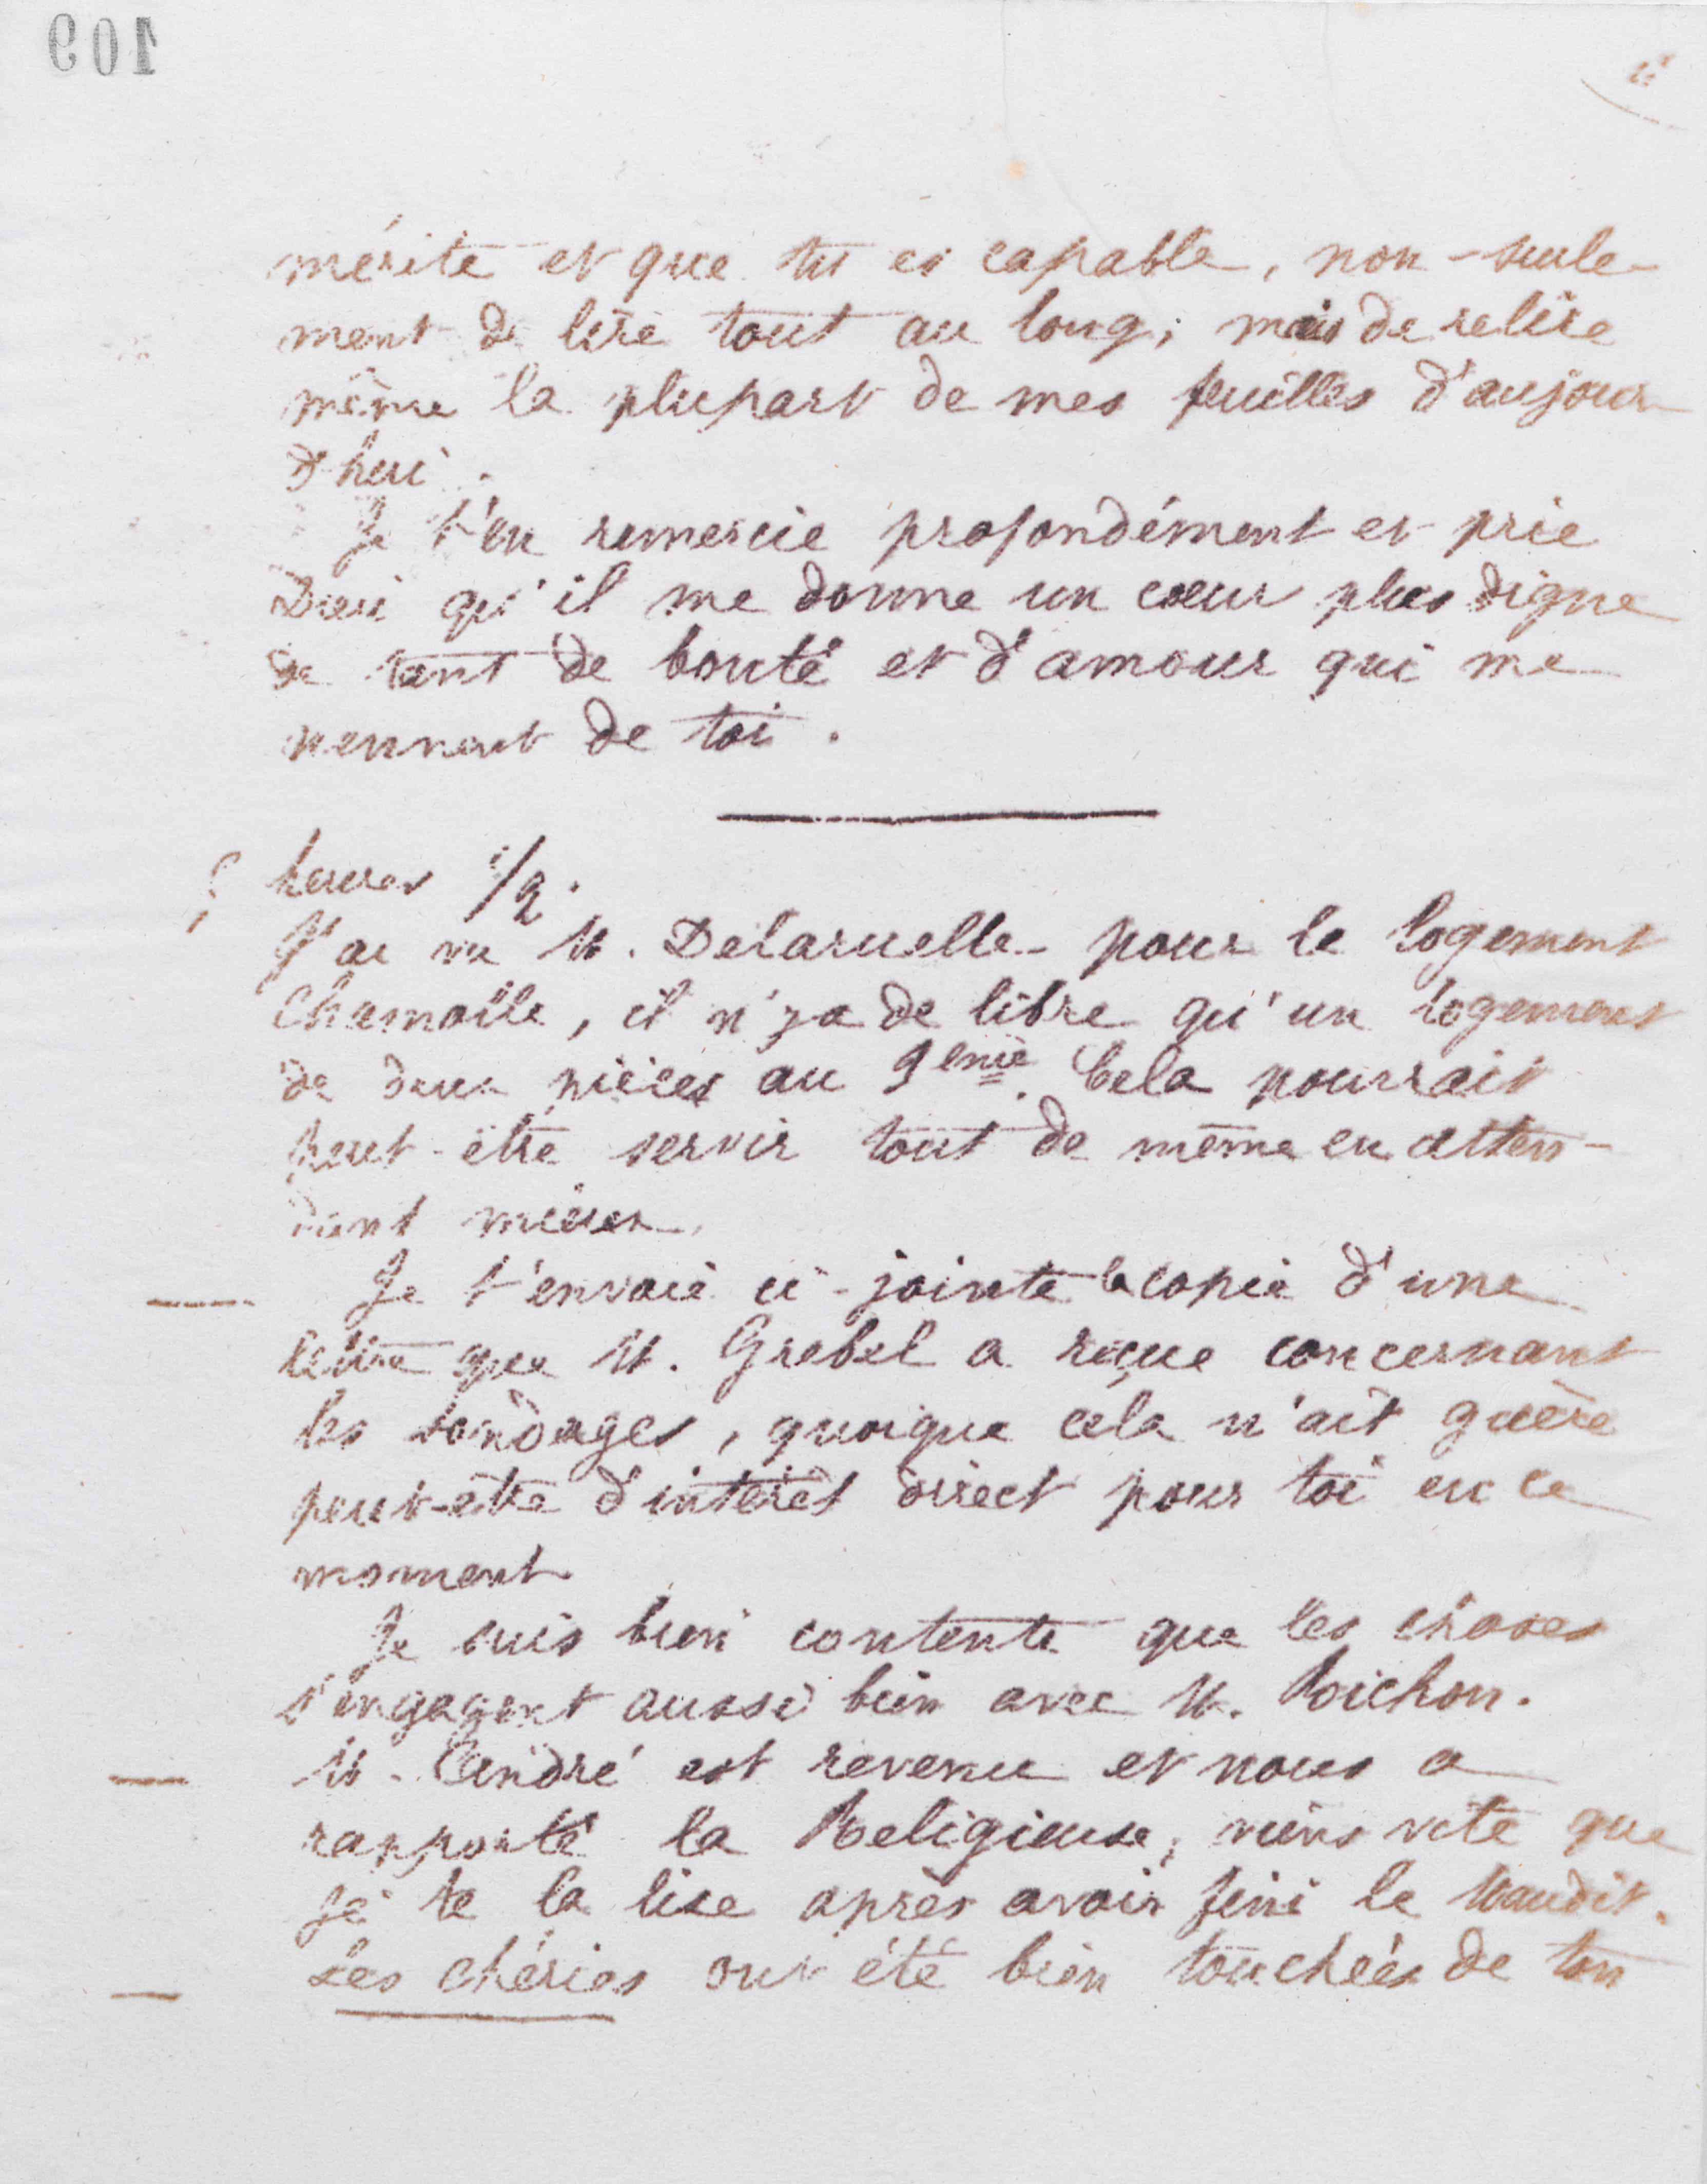 109
mérite et que tu es capable, non-seule-
ment de lire tout au long, mais de relire
même la plupart de mes feuilles d'aujour-
d'hui.
Je t'en remercie profondément et prie
Dieu qu'il me donne un cœur plus digne
de tant de bonté et d'amour qui me
viennent de toi.
heures 1/2.
J'ai vu M. Delaruelle pour le logement
, il n'y a de libre qu'un logement
de deux pièces au Cela pourrait
peut-être servir tout de même en atten-
dant mieux.
Je t'envoie ci-jointe la copie d'une
lettre que M. Grebel a reçue concernant
les sondages, quoique cela n'ait guère
peut-être d'intérêt direct pour toi en ce
moment
Je suis bien contente que les choses
s'engagent aussi bien avec M.
M. André est revenu et nous a
rapporté la Religieuse, viens vite que
je te la lise après avoir fini le Maudit.
Les chéries ont été bien touchées de ton